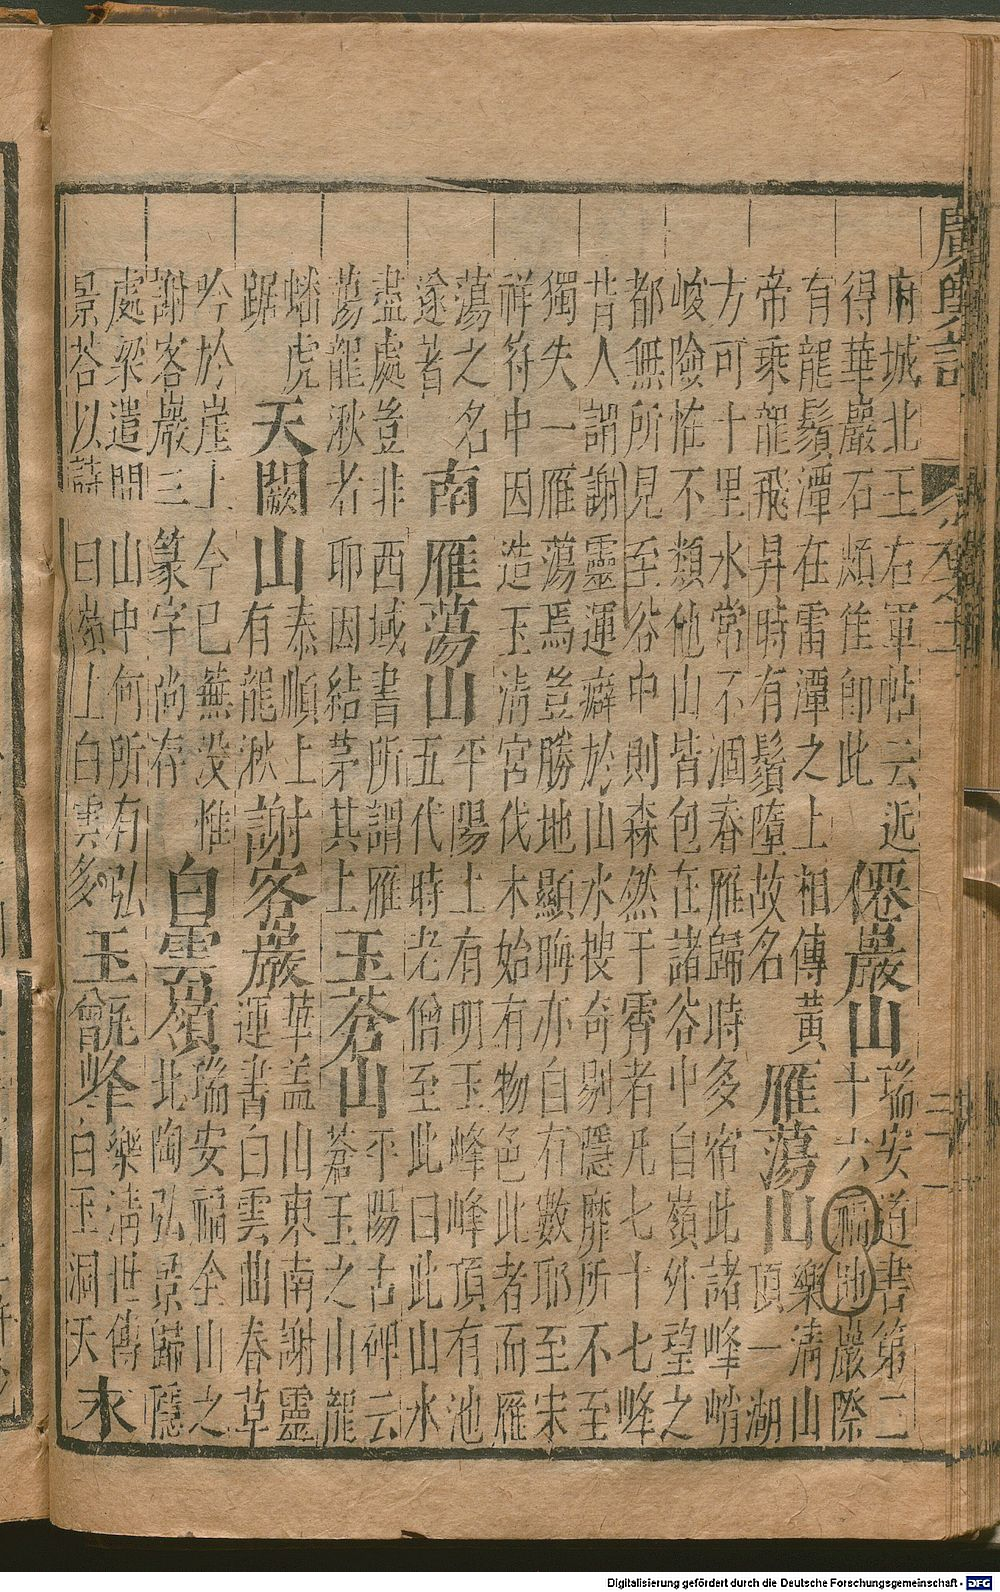 廣輿記
府城北王右軍帖云近
得華嚴石頗佳卽此
僊巖山
瑞安道書第二
十六福地巖際
有龍鬚潭在雷潭之上相傳黃
帝乘龍飛昇時有鬚墮故名
雁蕩山
樂淸山
頂一湖
方可十里水常不涸春雁歸時多宿此諸峰峭
峻險恠不類他山皆包在諸谷中自嶺外望之
都無所見至谷中則森然干霄者凡七十七峰
昔人謂謝靈運癖於山水搜奇剔隱靡所不至
獨失一雁蕩焉豈勝地顯晦亦自有數耶至宋
祥符中因造玉淸宮伐木始有物色此者而雁
蕩之名
遂著
南雁蕩山
平陽上有明玉峰峰頂有池
五代時老僧至此曰此山水
盡處豈非西域書所謂雁
蕩龍湫者耶因結茅其上
玉蒼山
平陽古碑云
蒼玉之山龍
蟠虎
踞
天闕山
泰順上
有龍湫
謝客巖
華盖山東南謝靈
運書白雲曲春草
吟於崖上今已蕪没惟
謝客巖三篆字尚存
白雲嶺
瑞安福全山之
北陶弘景歸隱
處梁遣問山中何所有弘
景荅以詩曰嶺上白雲多
玉甑峰
樂淸世傳
白玉洞天
永
Digitalisierung gefördert durch die Deutsche Forschungsgemeinschaft - DFG